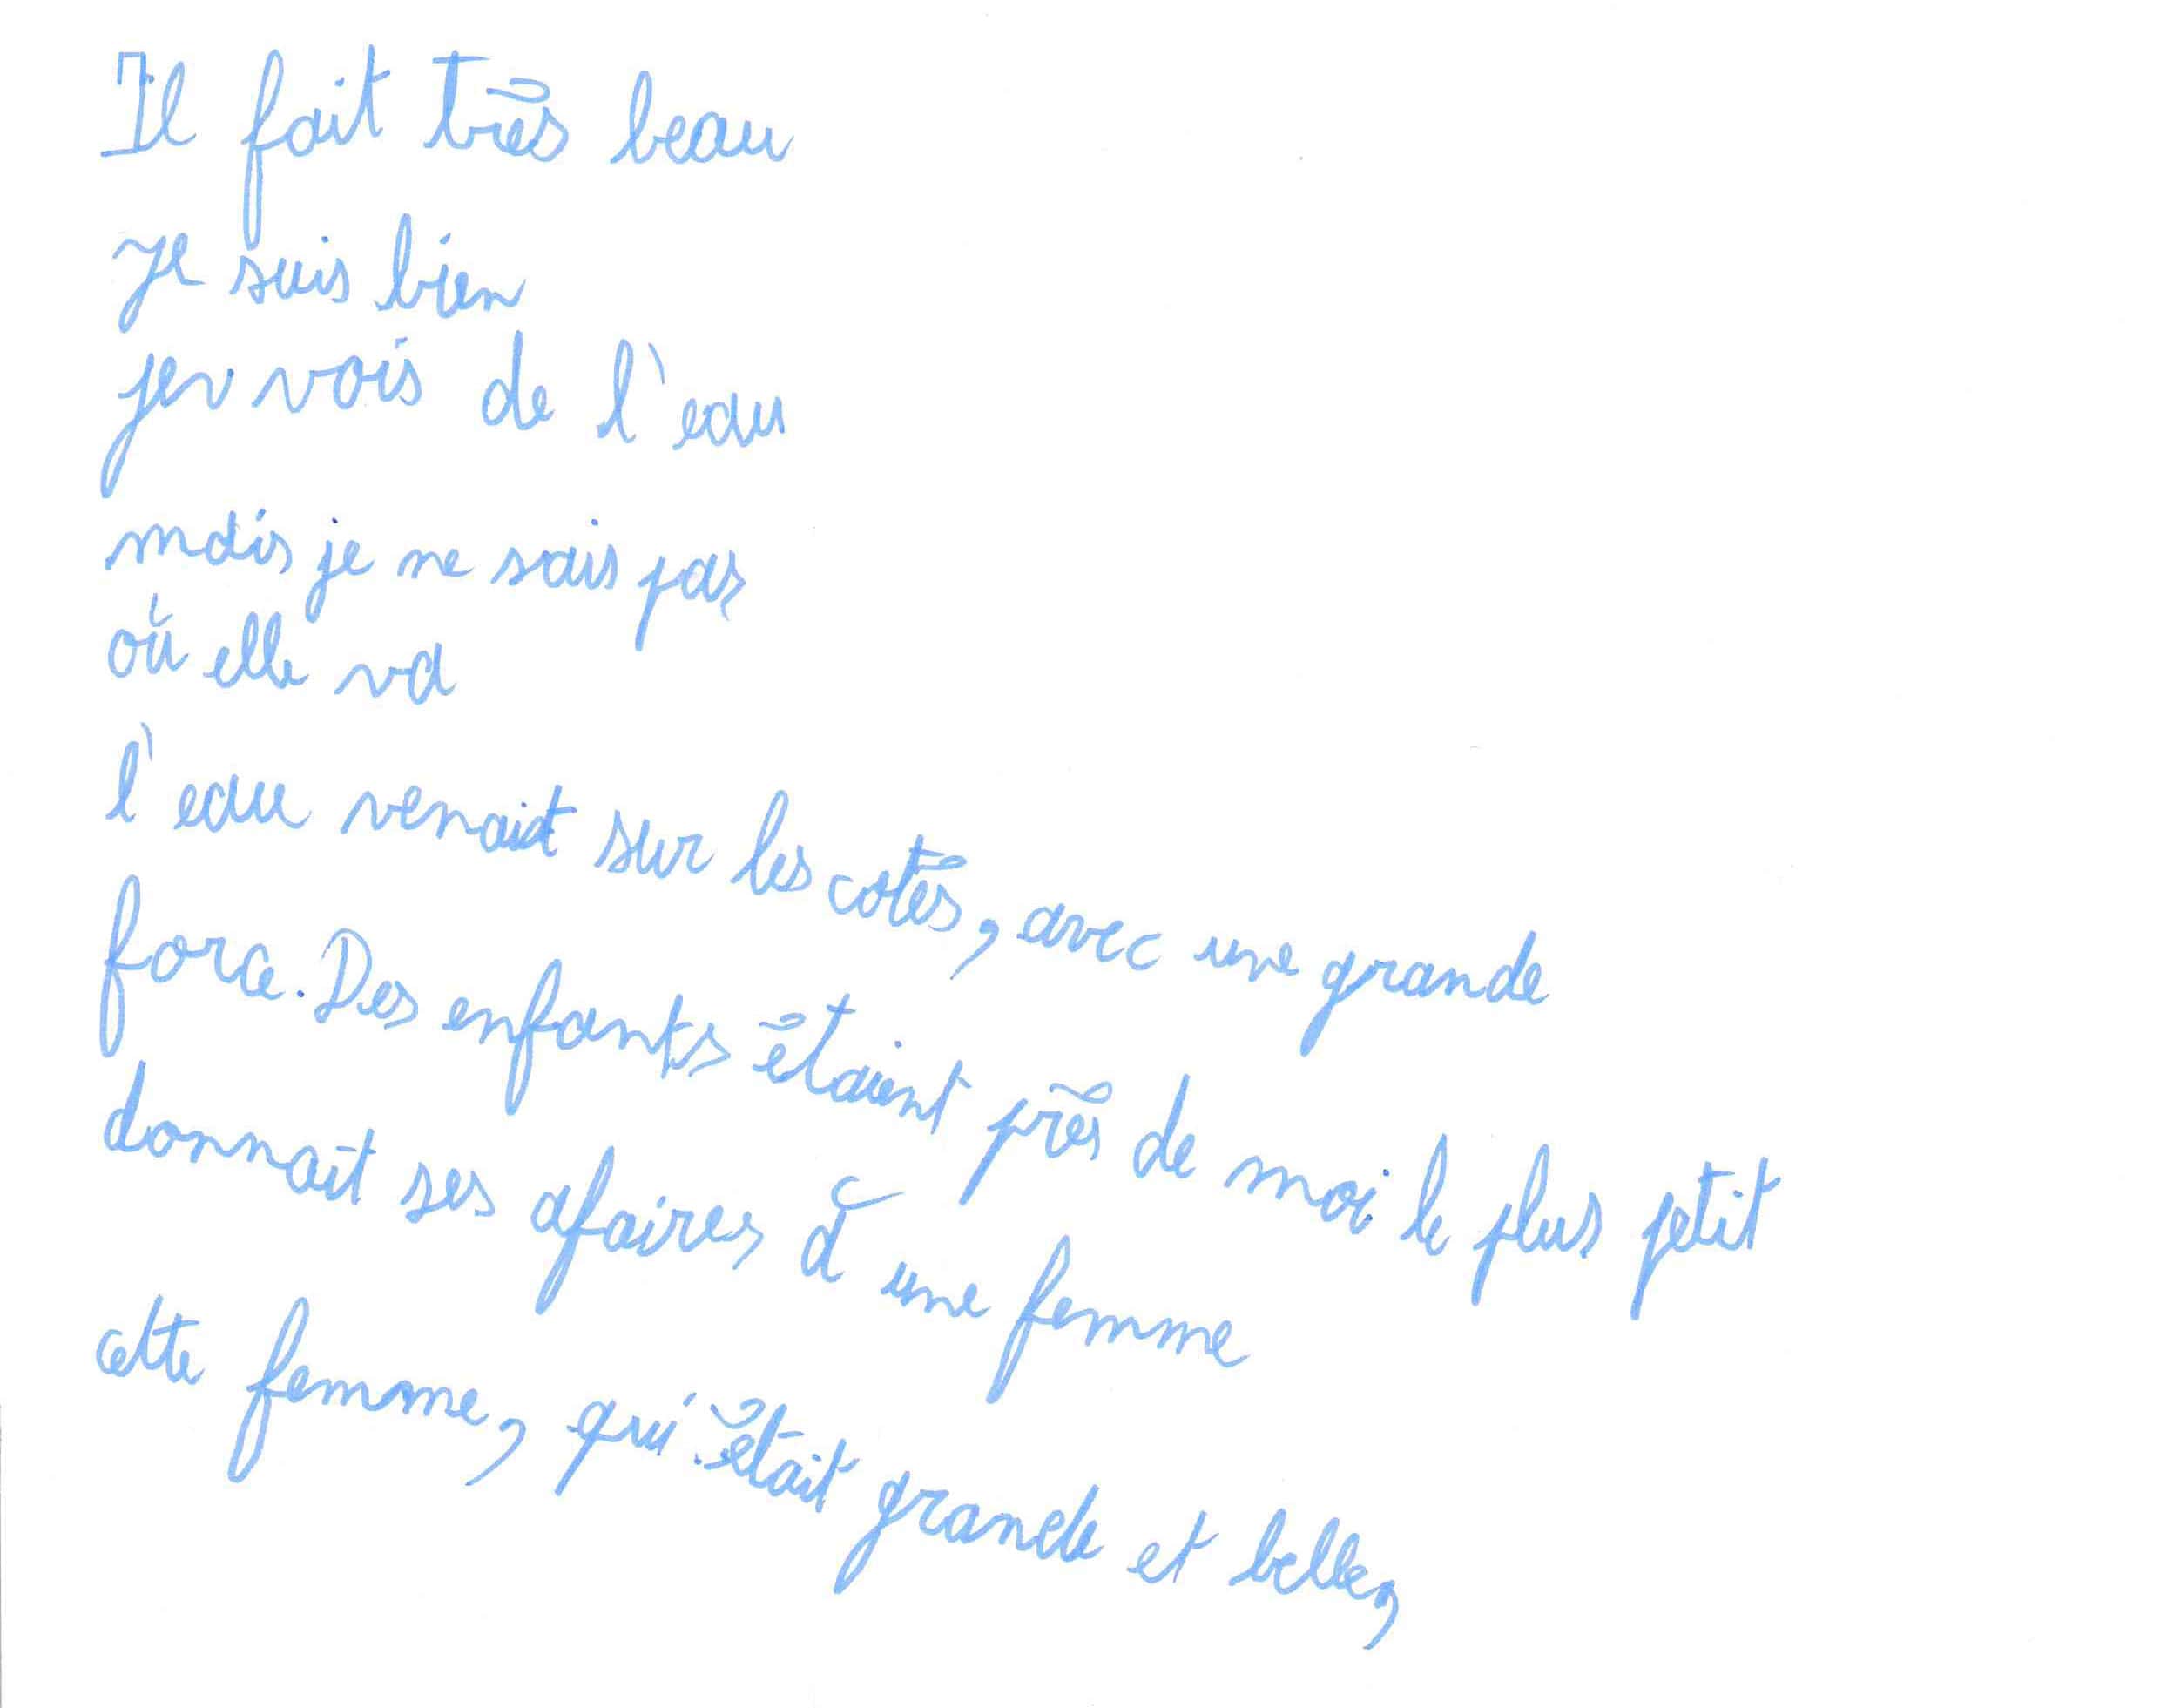 Il fait très beau
Je suis bien
je vois de l'eau
mais je ne sais pas
où elle va
l'eau venait sur les cotés, avec une grande
force. Des enfants étaient près de moi. le plus petit
donnait ses afaires à une femme
cette femme, qui était grande et belle,